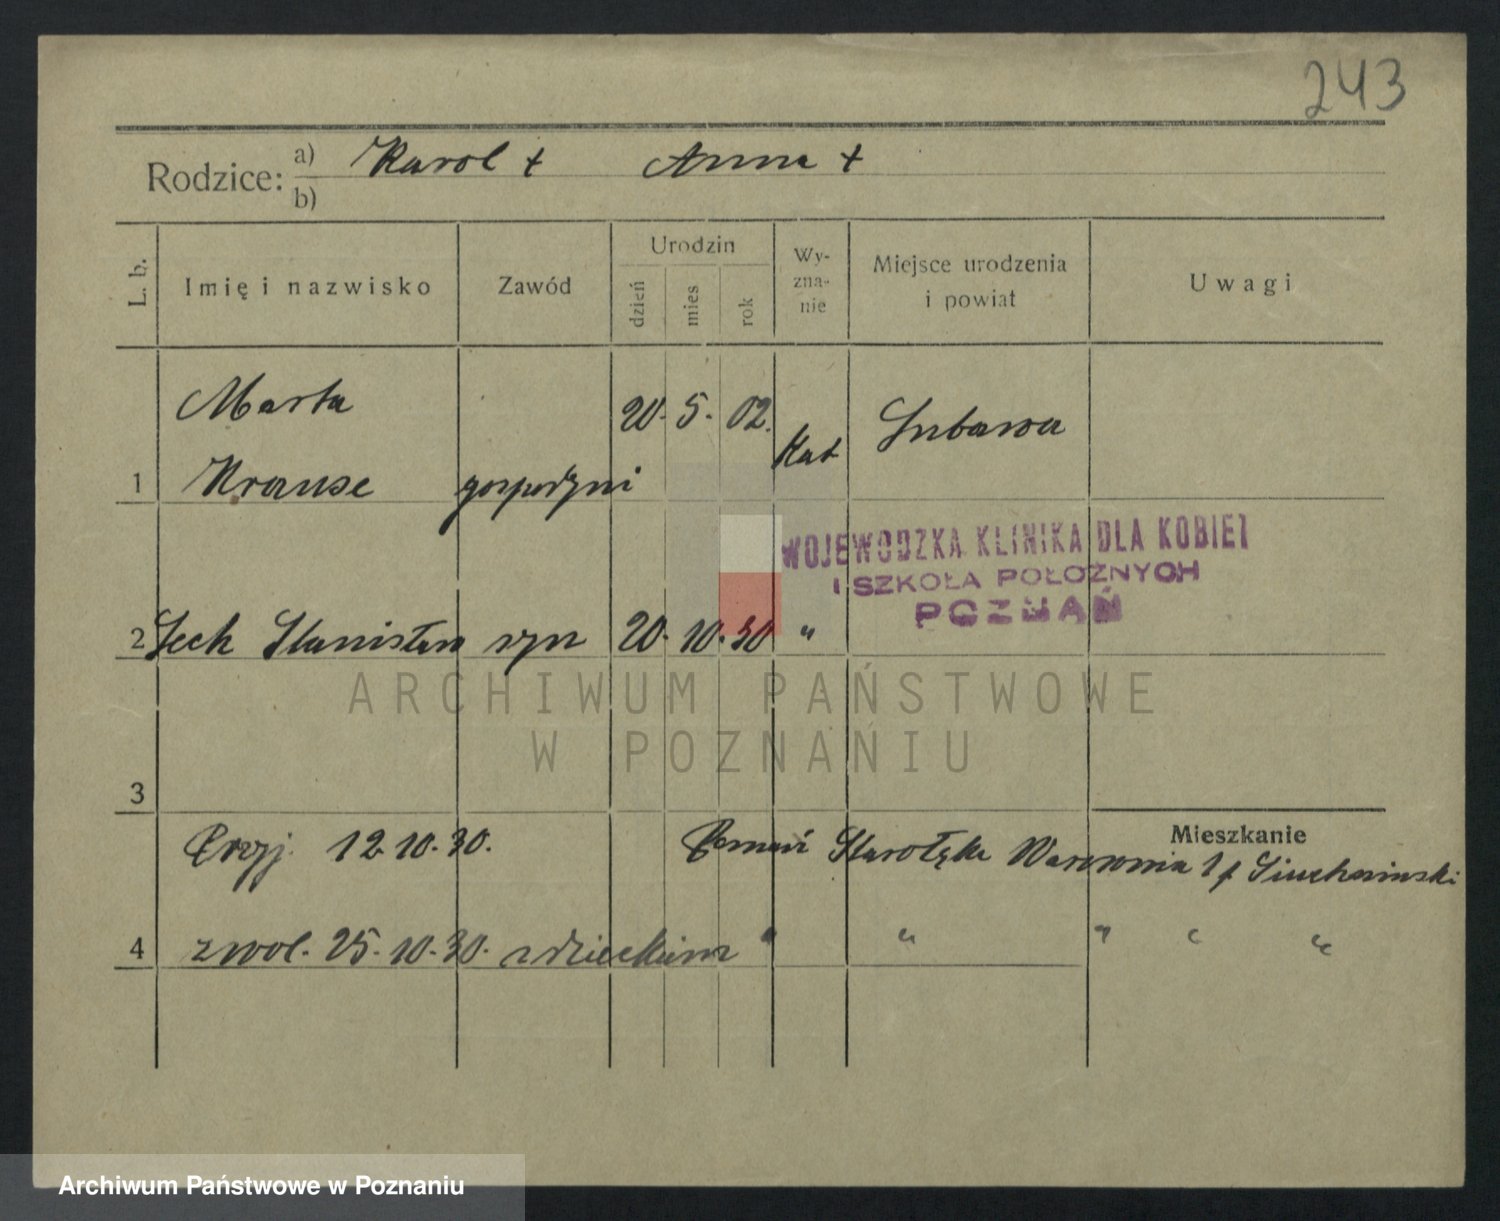 243
Rodzice: a) Karol + Anna +
b)
L. b. Imię i nazwisko Zawód Urodzin dzień mies rok Wy-zna-nie Miejsce urodzenia i powiat Uwagi
Marta 20. 5. 02. Kat Lubawa
1 Krause gospodyni
WOJEWÓDZKA KLINIKA DLA KOBIET
I SZKOŁA POŁOŻNYCH
POZNAŃ
2 Lech Stanisław syn 20. 10. 30 "
ARCHIWUM PAŃSTWOWE
W POZNANIU
3
Mieszkanie
Przyj. 12 10. 30. Poznań Starołęka
4 zwol. 25. 10. 30. z dzieckiem " " " " "
Archiwum Państwowe w Poznaniu